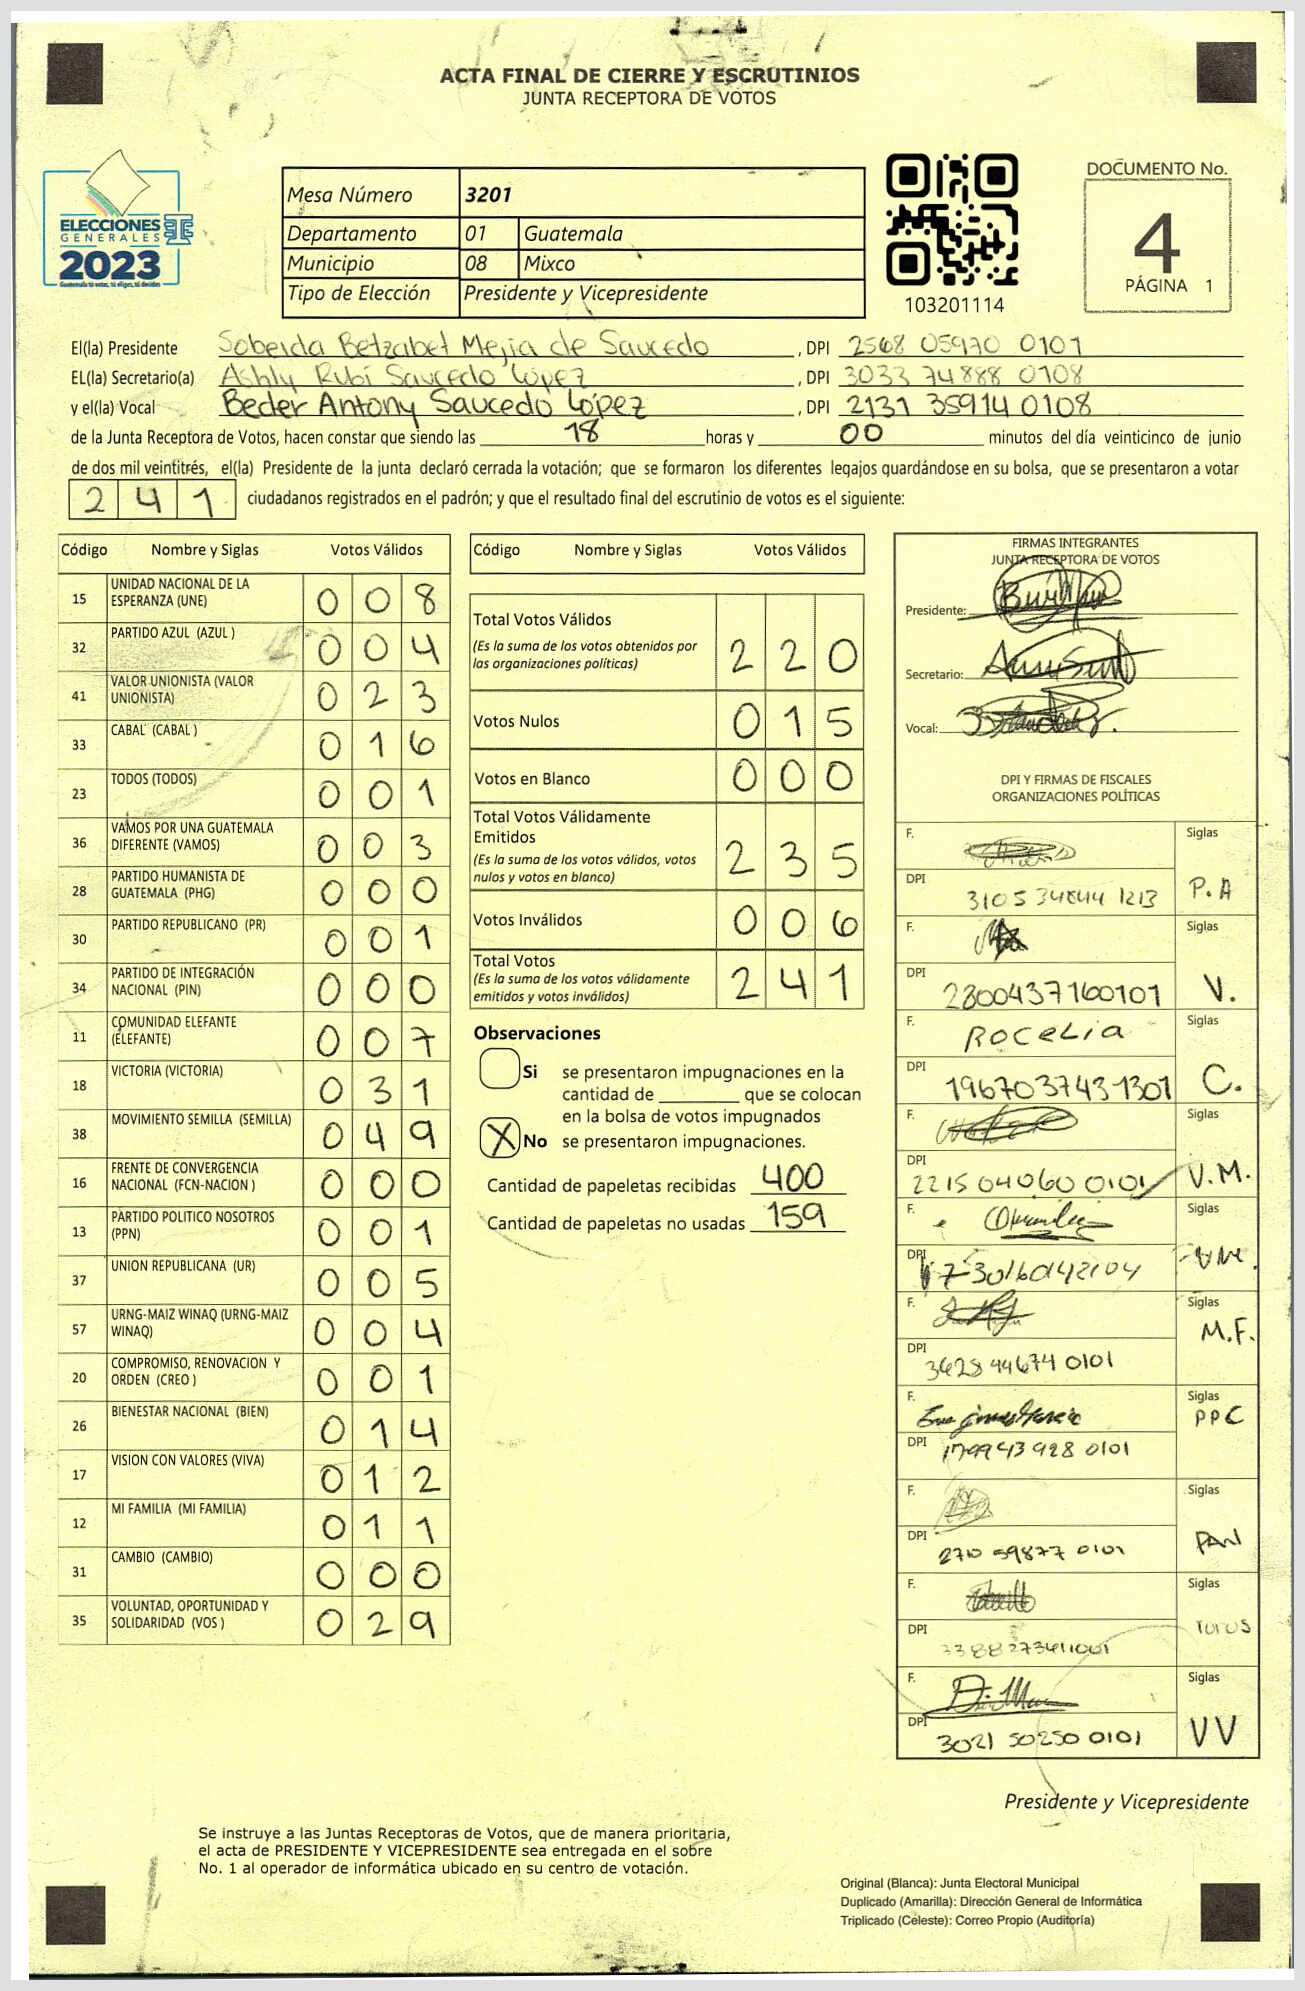 ACTA FINAL DE CIERRE Y ESCRUTINIOS
JUNTA RECEPTORA DE VOTOS
ELECCIONES
GENERALES
2023
Guatemala tú votas, tú eliges, tú decides
Mesa Número 3201
Departamento 01 Guatemala
Municipio 08 Mixco
Tipo de Elección Presidente y Vicepresidente
103201114
DOCUMENTO No.
4
PÁGINA 1
El(la) Presidente Sobeida Betzabet Mejia de Saucedo, DPI 2568 05970 0101
EL(la) Secretario(a) Ashly Rubí Saucedo López, DPI 3033 74888 0108
y el(la) Vocal Beder Antony Saucedo López, DPI 2131 35914 0108
de la Junta Receptora de Votos, hacen constar que siendo las 18 horas y 00 minutos del día veinticinco de junio
de dos mil veintitrés, el(la) Presidente de la junta declaró cerrada la votación; que se formaron los diferentes legajos guardándose en su bolsa, que se presentaron a votar
241 ciudadanos registrados en el padrón; y que el resultado final del escrutinio de votos es el siguiente:
Código Nombre y Siglas Votos Válidos
15 UNIDAD NACIONAL DE LA ESPERANZA (UNE) 008
32 PARTIDO AZUL (AZUL ) 004
41 VALOR UNIONISTA (VALOR UNIONISTA) 023
33 CABAL (CABAL ) 016
23 TODOS (TODOS) 001
36 VAMOS POR UNA GUATEMALA DIFERENTE (VAMOS) 003
28 PARTIDO HUMANISTA DE GUATEMALA (PHG) 000
30 PARTIDO REPUBLICANO (PR) 001
34 PARTIDO DE INTEGRACIÓN NACIONAL (PIN) 000
11 COMUNIDAD ELEFANTE (ELEFANTE) 007
18 VICTORIA (VICTORIA) 031
38 MOVIMIENTO SEMILLA (SEMILLA) 049
16 FRENTE DE CONVERGENCIA NACIONAL (FCN-NACION ) 000
13 PARTIDO POLITICO NOSOTROS (PPN) 001
37 UNION REPUBLICANA (UR) 005
57 URNG-MAIZ WINAQ (URNG-MAIZ WINAQ) 004
20 COMPROMISO, RENOVACION Y ORDEN (CREO ) 001
26 BIENESTAR NACIONAL (BIEN) 014
17 VISION CON VALORES (VIVA) 012
12 MI FAMILIA (MI FAMILIA) 011
31 CAMBIO (CAMBIO) 000
35 VOLUNTAD, OPORTUNIDAD Y SOLIDARIDAD (VOS ) 029
Código Nombre y Siglas Votos Válidos
Total Votos Válidos 220
(Es la suma de los votos obtenidos por
las organizaciones políticas)
Votos Nulos 015
Votos en Blanco 000
Total Votos Válidamente
Emitidos 235
(Es la suma de los votos válidos, votos
nulos y votos en blanco)
Votos Inválidos 006
Total Votos 241
(Es la suma de los votos válidamente
emitidos y votos inválidos)
Observaciones
Si se presentaron impugnaciones en la
cantidad de ________ que se colocan
en la bolsa de votos impugnados
X No se presentaron impugnaciones.
Cantidad de papeletas recibidas 400
Cantidad de papeletas no usadas 159
FIRMAS INTEGRANTES
JUNTA RECEPTORA DE VOTOS
Presidente:
Secretario:
Vocal:
DPI Y FIRMAS DE FISCALES
ORGANIZACIONES POLÍTICAS
F. Siglas
DPI P.A
F. Siglas
DPI 2800437160101 V.
F. Rocelia Siglas
DPI 1967037431301 C.
F. Siglas
DPI 2215 04060 0101 V.M.
F. Siglas
DPI
F. Siglas
DPI 3628 44674 0101 M.F.
F. Siglas
DPI 1799 43 928 0101 PPC
F. Siglas
DPI 2710 59877 0101 PAN
F. Siglas
DPI
F. Siglas
DPI 3021 50250 0101 VV
Presidente y Vicepresidente
Se instruye a las Juntas Receptoras de Votos, que de manera prioritaria,
el acta de PRESIDENTE Y VICEPRESIDENTE sea entregada en el sobre
No. 1 al operador de informática ubicado en su centro de votación.
Original (Blanca): Junta Electoral Municipal
Duplicado (Amarilla): Dirección General de Informática
Triplicado (Celeste): Correo Propio (Auditoría)